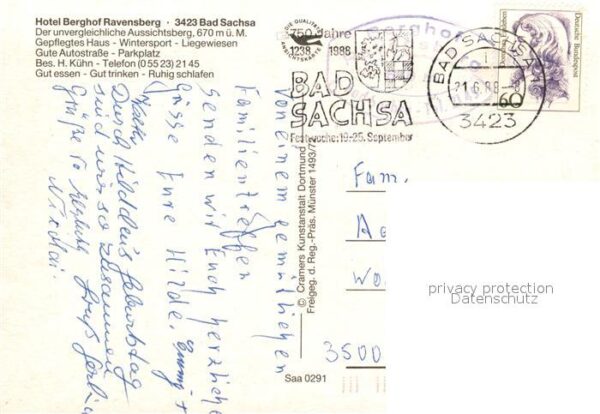 Hotel Berghof Ravensberg · 3423 Bad Sachsa
Der unvergleichliche Aussichtsberg, 670 m ü. M.
Gepflegtes Haus - Wintersport - Liegewiesen
Gute Autostraße - Parkplatz
Bes. H. Kühn - Telefon (0 55 23) 21 45
Gut essen - Gut trinken - Ruhig schlafen
DIE QUALITÄTS
ANSICHTSKARTE
750 Jahre
1238 1988
BAD
SACHSA
Festwoche: 19.-25. September
Berghof
BAD SACHSA 1
21.6.88-8
3423
Deutsche Bundespost
60
Von einem gemütlichen
Familientreffen
senden wir Euch herzliche
Grüsse Eure Hilde.
Durch Hildchens Geburtstag
sind wir so zusammen
Grüße
© Cramers Kunstanstalt Dortmund
Freigeg. d. Reg.-Präs. Münster 1493/7
Saa 0291
Fam.
3500
privacy protection
Datenschutz